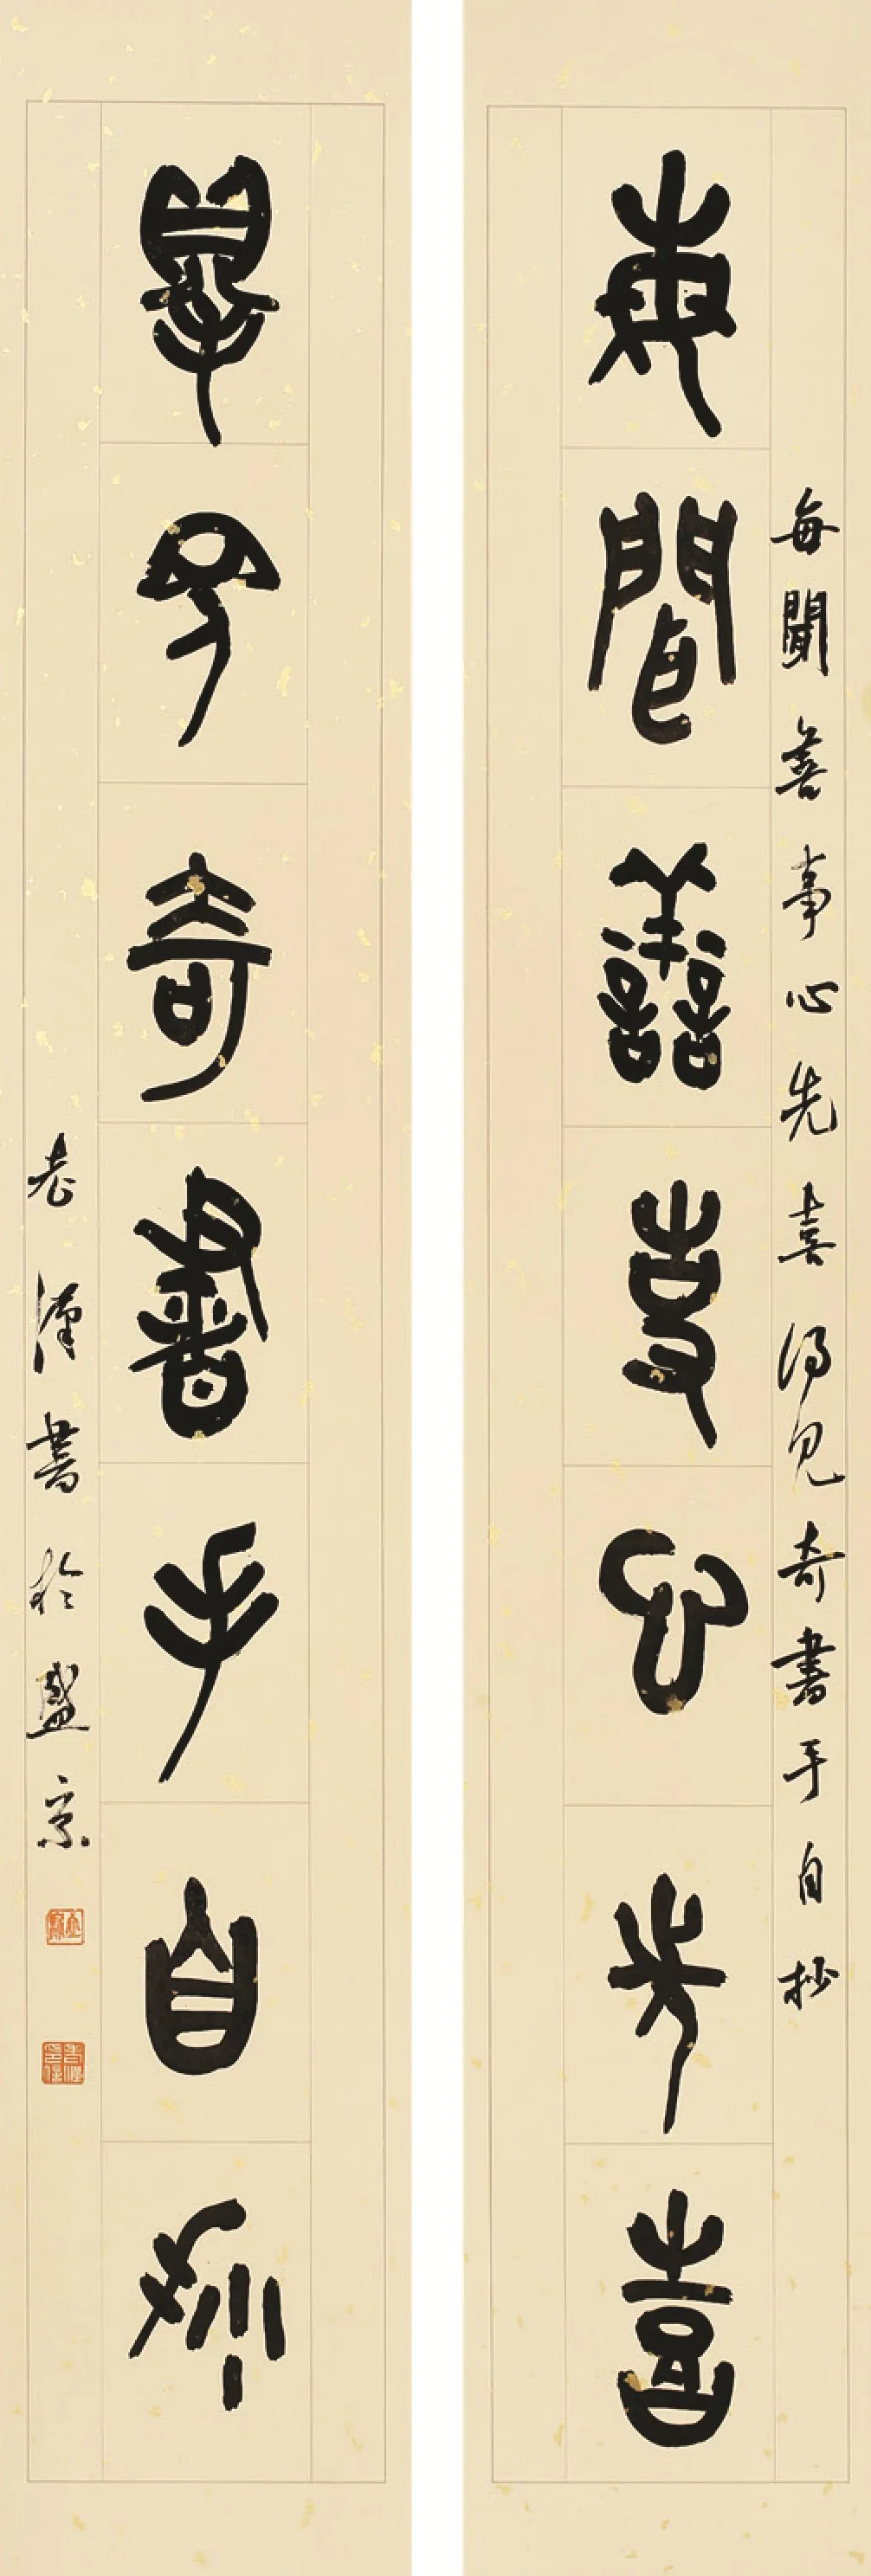 每聞善事心先喜得見奇書手自抄
每聞善事心先喜
得見奇書手自抄
老漢書於盛京